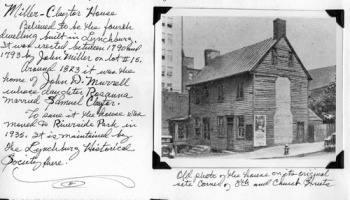 Miller-Claytor House
Believed to be the fourth
dwelling built in Lynchburg.
It was erected between 1790 and
1793 by John Miller on lot # 15.
Around 1823 it was the
home of John D. Murrell
whose daughter Rosanna
married Samuel Claytor.
To save it the house was
moved to Riverside Park in
1935. It is maintained by
the Lynchburg Historical
Society here.
Old photo of the house on its original
site Corner of 8th and Church Streets